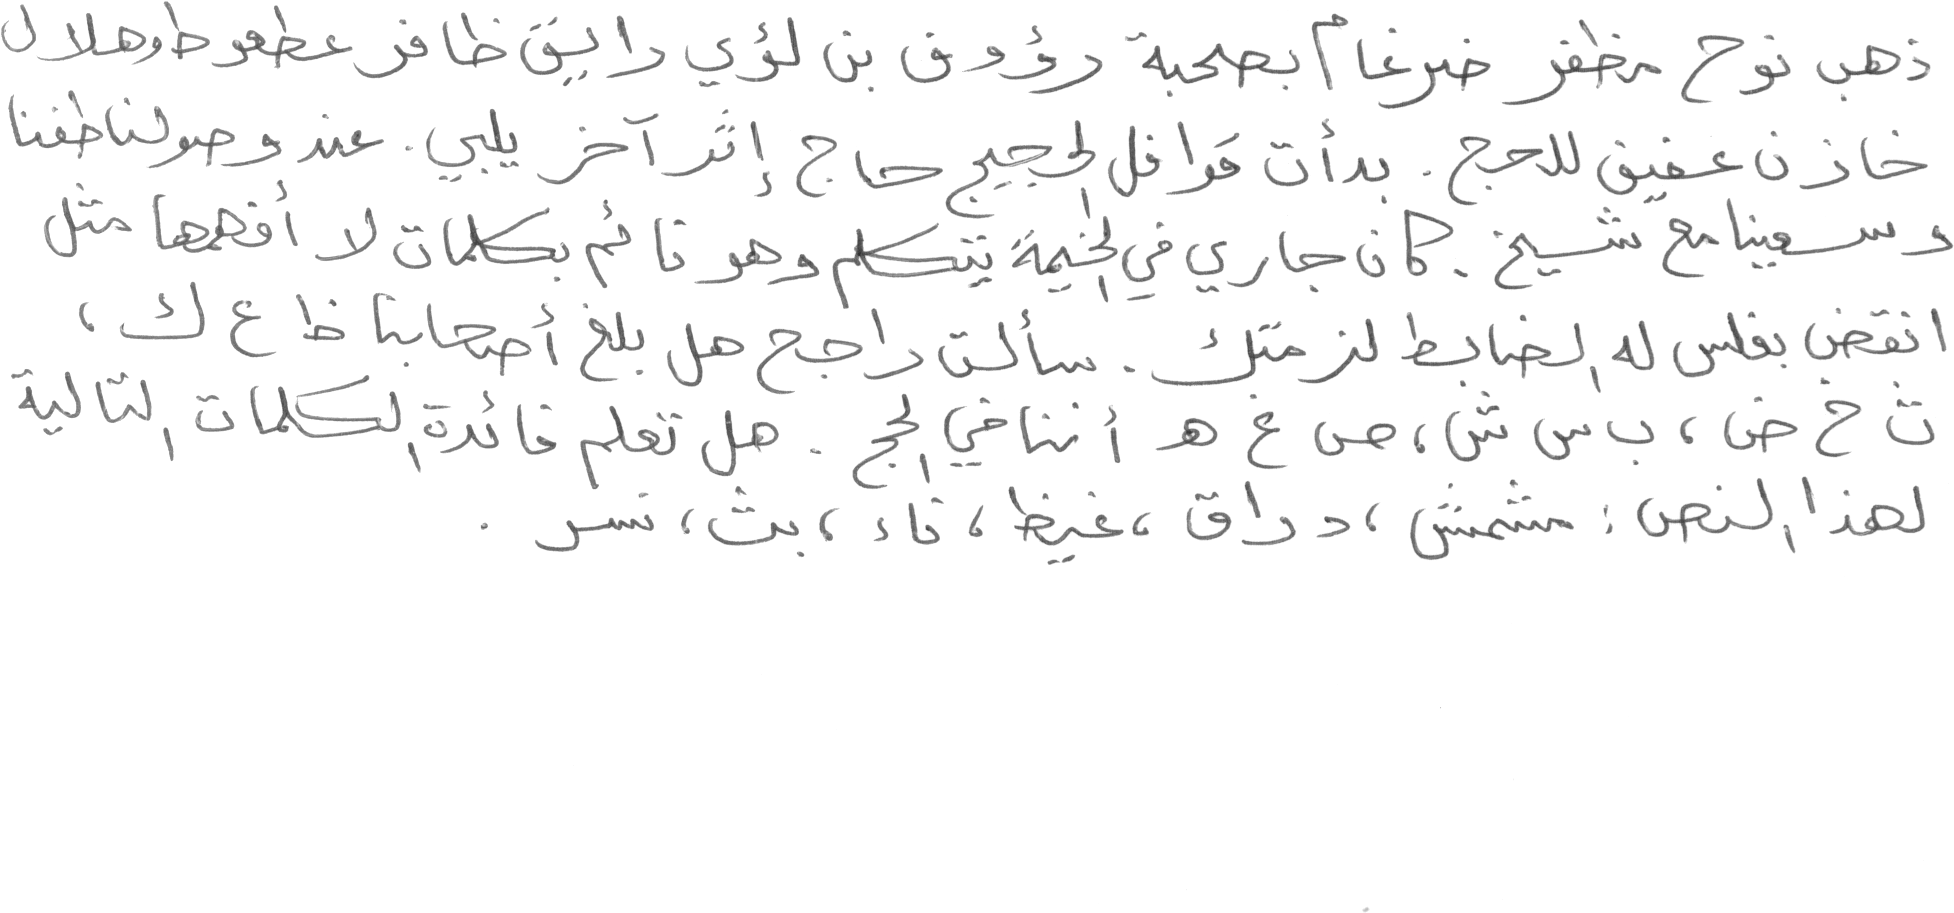 ذهب نوح مظفر ضرغام بصحبة رؤوف بن لؤي رايق ظافر عطعوط وهلال
خازن عفيق للحج. بدأت قوافل الحجيج حاج إثر آخر يلبي. عند وصولنا طفنا
وسعينا مع شيخ. كان جاري في الخيمة يتكلم وهو نائم بكلمات لا أفهمها مثل
انقض بفلس له الضابط لزمتك. سألت راجح هل بلغ أصحابنا ظ ع ك،
ث خ ض، ب س ش، ص غ ه أننا في الحج. هل تعلم فائدة الكلمات التالية
لهذا النص: مشمش، دراق، غيظ، ناء، بث، نسر.